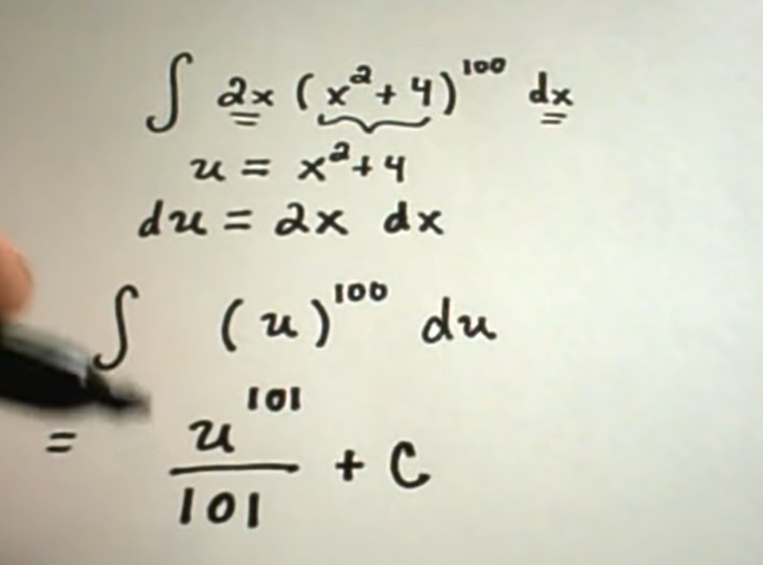 ∫ 2x (x²+4)¹⁰⁰ dx
u = x²+4
du = 2x dx
∫ (u)¹⁰⁰ du
= u¹⁰¹/101 + C